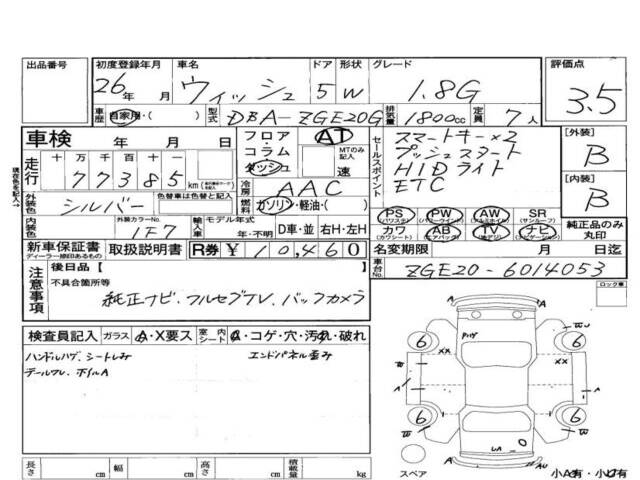 出品番号 初度登録年月 車名 ドア 形状 グレード 評価点
26年 月 ウィッシュ 5 W 1.8G 3.5
車歴 自家用・( ) 型式 DBA-ZGE20G 排気量 1800cc 定員 7人
車検 年 月 日
フロア・コラム・ダッシュ AT MTのみ記入 速
セールスポイント
スマートキー×2
プッシュスタート
HIDライト
ETC
[外装] B
[内装] B
走行 十 万 千 百 十 一
77385 km
現在色を記入→
冷房 AAC
燃料 ガソリン・軽油・( )
外装色 シルバー 色替車は色替と記入
内装色 外装カラーNo. 1F7
輸入車 モデル年式 年・不明 D車・並 右H・左H
PS (パワステ) PW (パワーウインド) AW (アルミホイル) SR (サンルーフ)
カワ (カワシート) AB (エアバッグ) TV (テレビ) ナビ (ナビゲーション)
純正品のみ丸印
新車保証書 ディーラー捺印あるもの 取扱説明書 R券 ¥10,460
名変期限 月 日迄
車台No. ZGE20-6014053
注意事項 後日品【 】
不具合箇所等
純正ナビ、フルセグTV、バックカメラ
ロック車
検査員記入 ガラス A・X要ス 室内シート・コゲ・穴・汚れ・破れ
エンドパネル歪み
6 6
XX XX
A A
6 6
長さ cm 幅 cm 高さ cm 積載量 kg
スペア 小A有・小U有